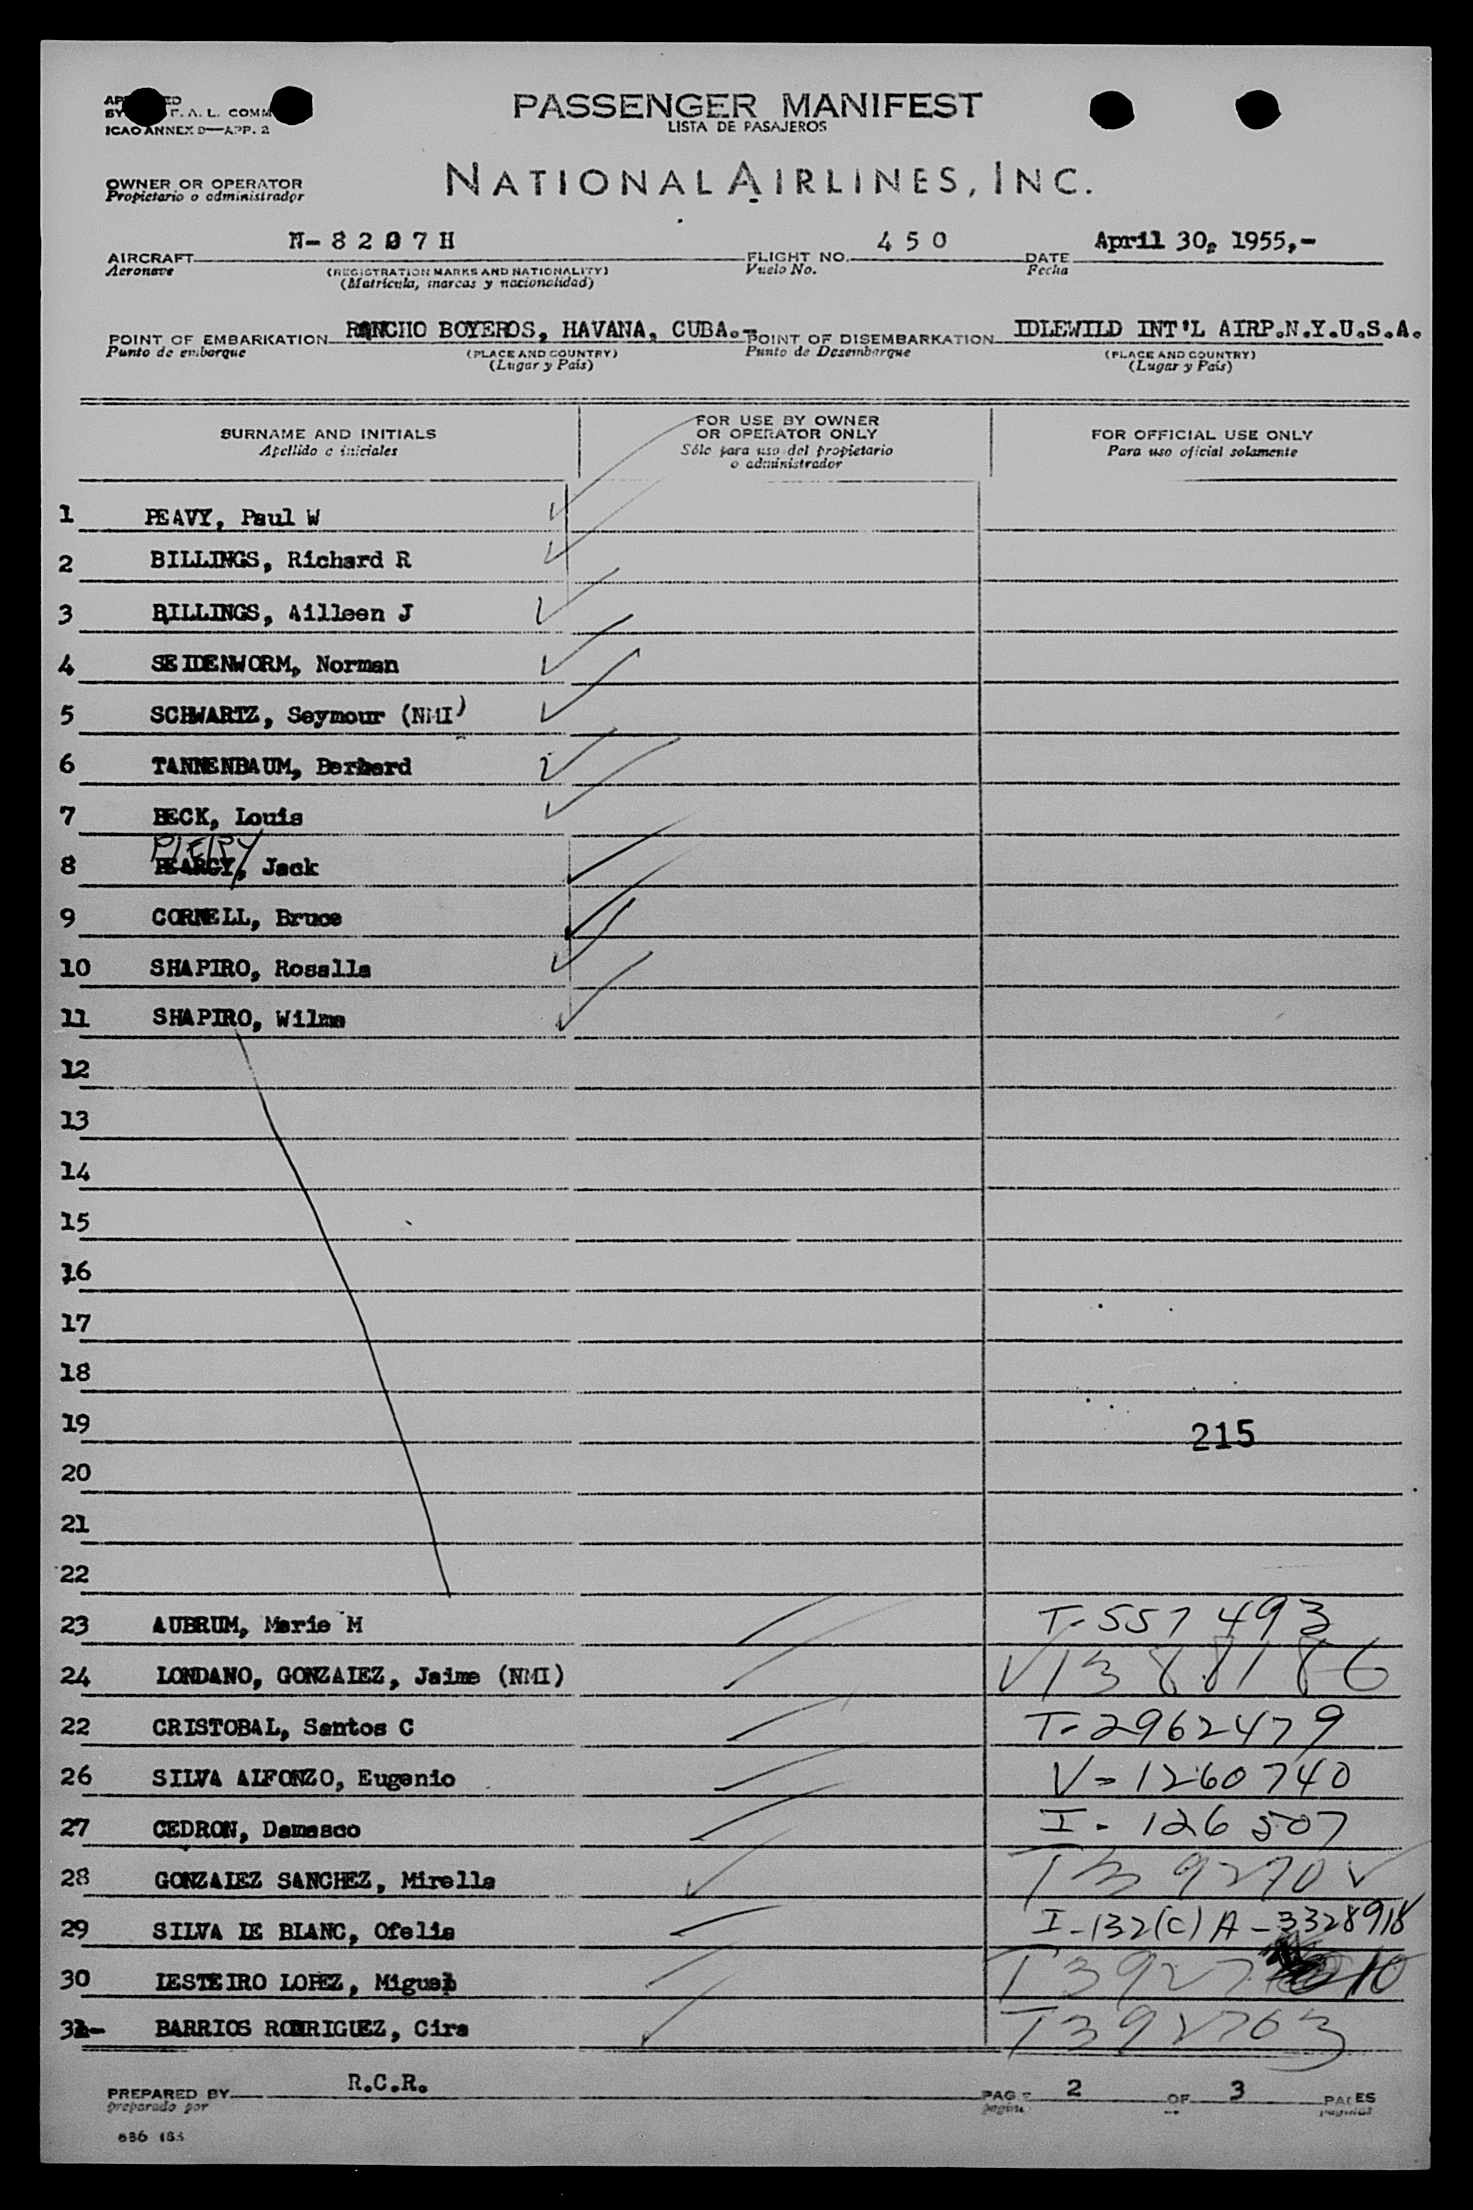 PASSENGER MANIFEST
LISTA DE PASAJEROS
BY F. A. L. COMM
ICAO ANNEX 9—APP. 2
OWNER OR OPERATOR
Propietario o administrador
NATIONAL AIRLINES, INC.
AIRCRAFT N-8207H FLIGHT NO. 450 DATE April 30, 1955,-
Aeronave (REGISTRATION MARKS AND NATIONALITY) Vuelo No. Fecha
(Matrícula, marcas y nacionalidad)
POINT OF EMBARKATION RANCHO BOYEROS, HAVANA, CUBA.- POINT OF DISEMBARKATION IDLEWILD INT'L AIRP.N.Y.U.S.A.
Punto de embarque (PLACE AND COUNTRY) Punto de Desembarque (PLACE AND COUNTRY)
(Lugar y País) (Lugar y País)
SURNAME AND INITIALS
Apellido e iniciales
FOR USE BY OWNER
OR OPERATOR ONLY
Sólo para uso del propietario
o administrador
FOR OFFICIAL USE ONLY
Para uso oficial solamente
1 PEAVY, Paul W
2 BILLINGS, Richard R
3 BILLINGS, Ailleen J
4 SEIDENWORM, Norman
5 SCHWARTZ, Seymour (NMI)
6 TANNENBAUM, Bernard
7 BECK, Louis
8 PEARCY, Jack
9 CORNELL, Bruce
10 SHAPIRO, Rosalla
11 SHAPIRO, Wilma
12
13
14
15
16
17
18
19 215
20
21
22
23 AUBRUM, Marie M T-557493
24 LONDANO, GONZALEZ, Jaime (NMI) V1388186
22 CRISTOBAL, Santos C T-2962479
26 SILVA ALFONZO, Eugenio V-1260740
27 CEDRON, Damasco I-126507
28 GONZALEZ SANCHEZ, Mirella T39270
29 SILVA DE BLANC, Ofelia I-132(C) A-3328918
30 LESTEIRO LOPEZ, Miguel T3927
BARRIOS RODRIGUEZ, Cira T392703
PREPARED BY R.C.R. PAGE 2 OF 3 PAGES
preparado por pagina paginas